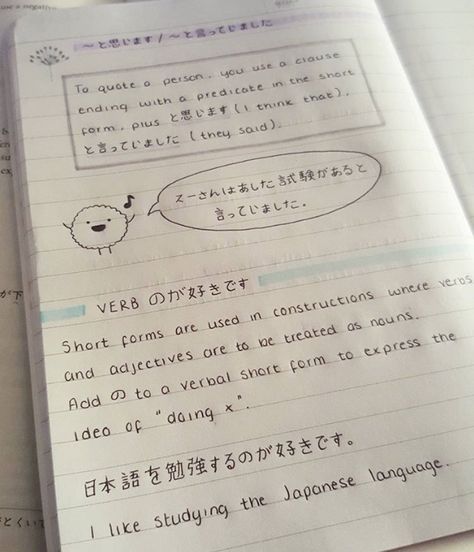 use a negative
～と思じます / ～と言ってじました
To quote a person, you use a clause
ending with a predicate in the short
form, plus と思じます (I think that),
と言ってじました (they said).
スーさんはあした試験があると
言ってじました.
VERB のが好きです
Short forms are used in constructions where verbs
and adjectives are to be treated as nouns.
Add の to a verbal short form to express the
idea of "doing x".
日本語を勉強するのが好きです。
I like studying the Japanese language.